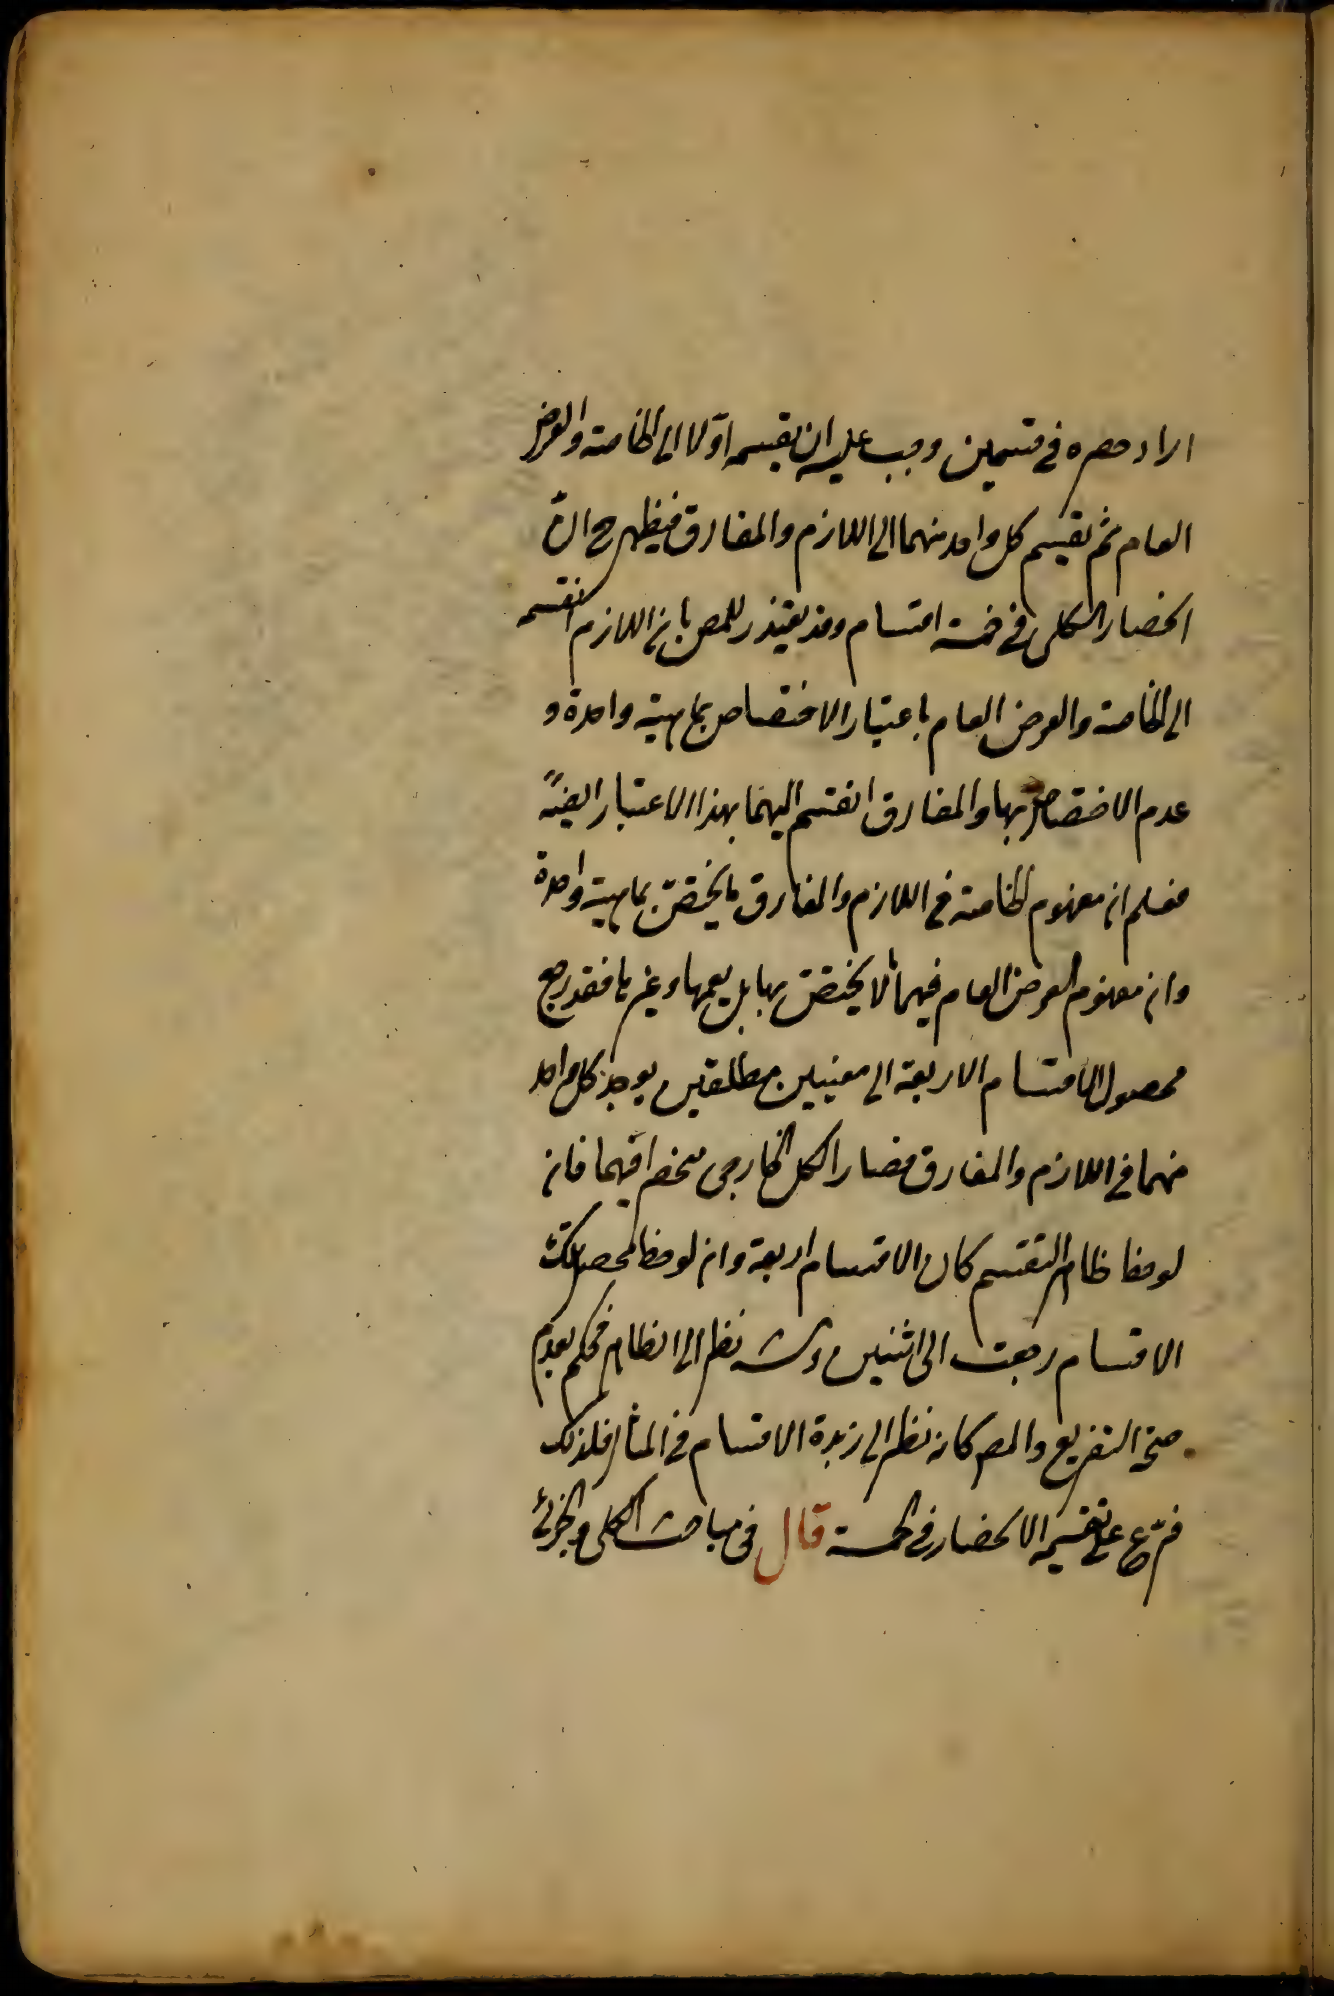 اراد حصره في قسمين وجب عليه ان يقسمه اوّلا الى الخاصة والعرض
العام ثم يقسم كل واحد منهما الى اللازم والمفارق فيظهر ح انّ
انحصار الكلى في خمسة اقسام وقد يعتذر للمص بان اللازم انقسم
الى الخاصة والعرض العام باعتبار الاختصاص بماهية واحدة و
عدم الاختصاص بها والمفارق انقسم اليهما بهذا الاعتبار ايضاً
فعلم ان مفهوم الخاصة في اللازم والمفارق ما يختصّ بماهية واحدة
وان مفهوم العرض العام فيهما ما لا يختصّ بها بل يعمها وغيرها فقد رجع
محصول الاقسام الاربعة الى معنيين مطلقين يوجد كل واحد
منهما في اللازم والمفارق فصار الكلى الخارجى منحصرا فيهما فان
لوحظ ظاهر التقسيم كان الاقسام اربعة وان لوحظ محصل تلك
الاقسام رجعت الى اثنين نظر الى الظاهر فحكم بعدم
صحة التفريع والمص كانه نظر الى زبدة الاقسام في المآل فلذلك
فرّع على تقسيمه الانحصار في الخمسة قال في مباحث الكلى والجزئى